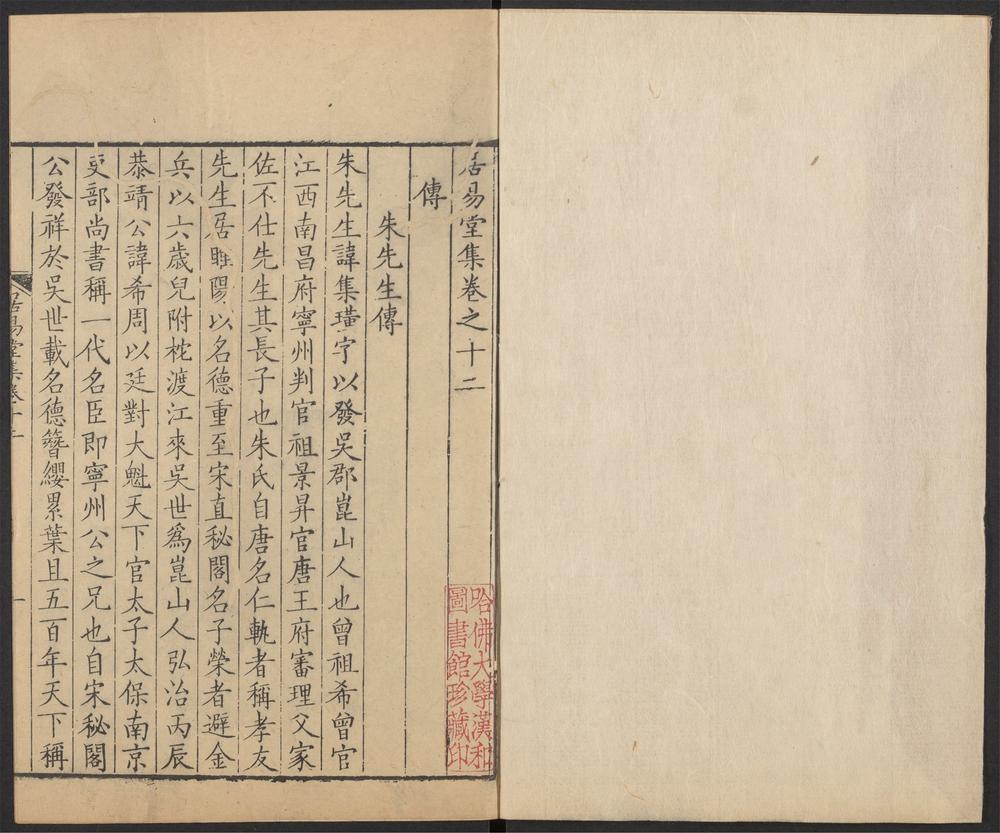 居易堂集卷之十二
傳
朱先生傳
朱先生諱集璜字以發吳郡崑山人也曾祖希曾官
江西南昌府寧州判官祖景昇官唐王府審理父家
佐不仕先生其長子也朱氏自唐名仁軌者稱孝友
先生居睢陽以名德重至宋直秘閣名子榮者避金
兵以六歲兒附枕渡江來吳世爲崑山人弘治丙辰
恭靖公諱希周以廷對大魁天下官太子太保南京
吏部尚書稱一代名臣即寧州公之兄也自宋秘閣
公發祥於吳世載名德簪纓累葉且五百年天下稱
居易堂集卷十二
一
哈佛大學漢和
圖書館珍藏印